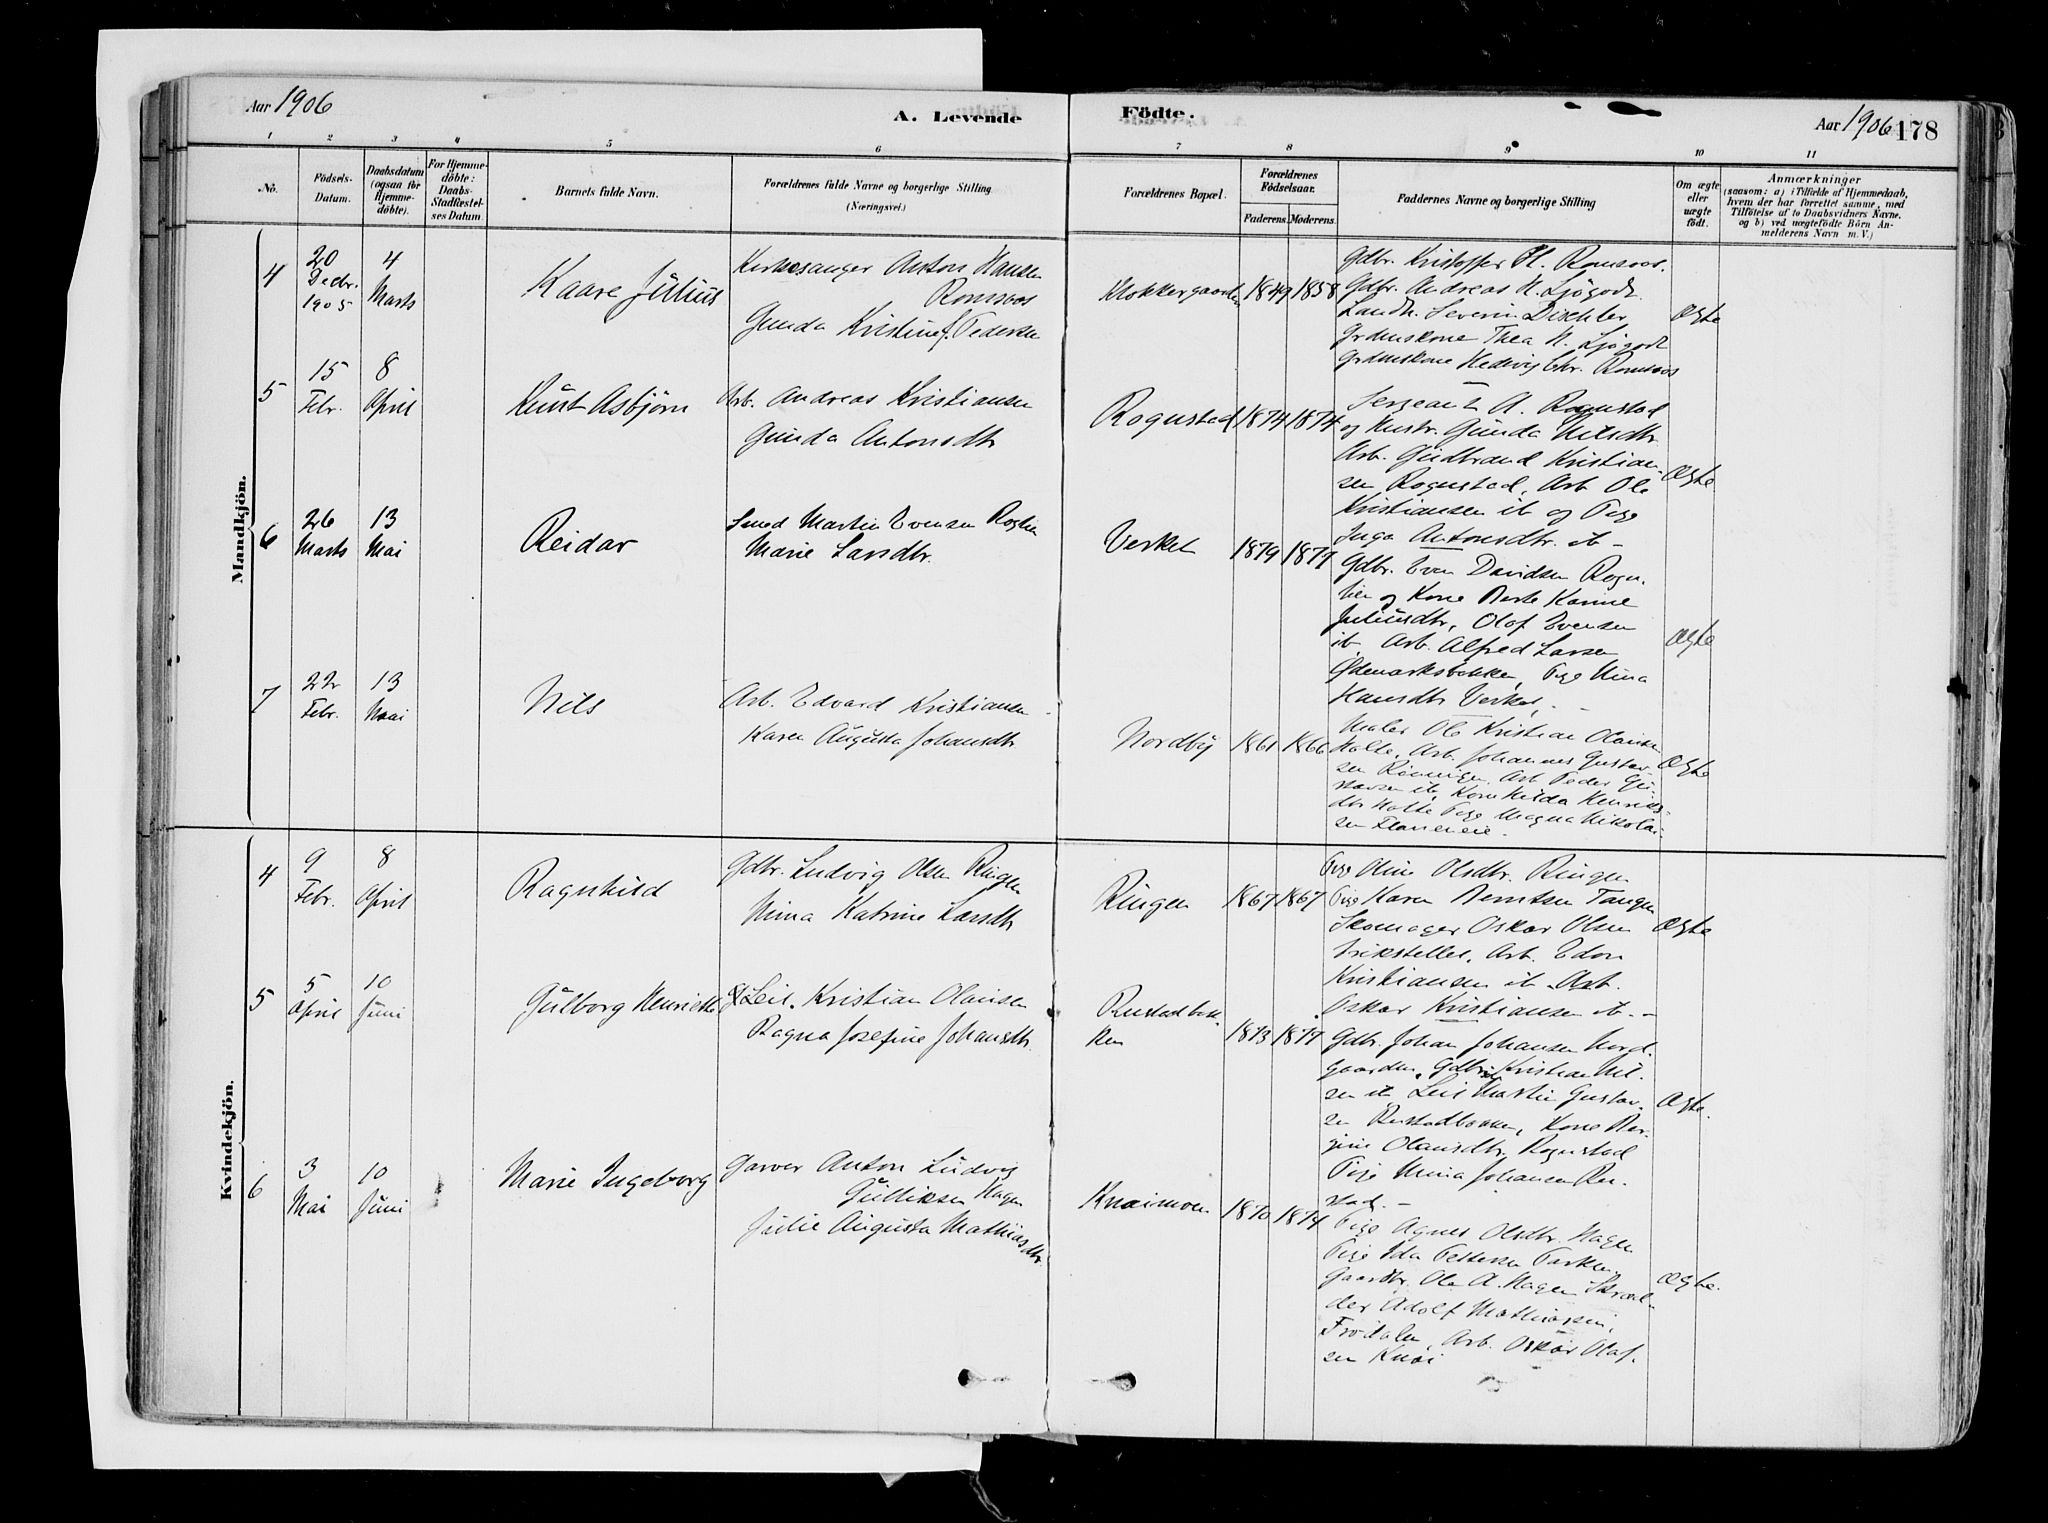 Aar 1906
A. Levende
Födte.
Aar 1906
178
1 2 3 4 5 6 7 8 9 10 11
No.
Födsels-
Datum.
Daabsdatum
(ogsaa for
Hjemme-
döbte).
For Hjemme-
döbte:
Daabs-
Stadfæstel-
ses Datum.
Barnets fulde Navn.
Forældrenes fulde Navne og borgerlige Stilling
(Næringsvei.)
Forældrenes Bopæl.
Forældrenes
Födselsaar.
Faderens. Moderens.
Faddernes Navne og borgerlige Stilling
Om ægte
eller
uægte
født.
Anmærkninger
(saasom: a) i Tilfælde af Hjemmedaab,
hvem der har forrettet samme, med
Tilföielse af to Daabsvidners Navne,
og b) ved uægtefödte Börn An-
melderens Navn m. V.)
Mandkjön.
4
20
Decbr.
1905
4
Marts
Kaare Julius
Kirkesanger Anton Hansen
Romsaas
Gunda Kristine f. Pedersen
Klokkergaarden
1849 1858
Gdbr. Kristoffer H. Romsaas.
Gdbr. Andreas N. Ljøgodt
Landh. Severin Dischler
Grdmskone Thea N. Ljøgodt
Grdmskone Hedevig Chr. Romsaas
Ægte
5
15
Febr.
8
April
Knut Asbjørn
Arb. Andreas Kristiansen
Gunda Antonsdtr
Rognstad
1874 1874
Sergeant A. Rognstad
og Hustr. Gunda Nilsdtr
Arb. Gudbrand Kristian-
sen Rognstad, Arb Ole
Kristiansen ib og Pige
Inga Antonsdtr. ib -
Ægte
6
26
Marts
13
Mai
Reidar
Smed Martin Evensen Roglien
Marie Larsdtr.
Verket
1879 1877
Gdbr. Even Davidsen Rogn-
lien og Kone Berte Karine
Juliusdtr, Olaf Evensen
ib, Arb. Alfred Larsen
Ødemarksbakken, Pige Mina
Hansdtr Verket. -
Ægte
7
22
Febr.
13
Mai
Nils
Arb. Edvard Kristiansen
Karen Augusta Johansdtr
Nordby
1861 1866
Maler Ole Kristian Olausen
Holte, Arb. Johannes Gustav-
sen Rønningen, Arb Peder Gu-
stavsen ib, Kone Hilda Henriks-
dtr Holte Pige Magna Nikolai-
sen
Ægte
Kvindekjön.
4
9
Febr.
8
April
Ragnhild
Gdbr. Ludvig Olsen Ringen
Mina Katrine Larsdtr
Ringen
1867 1867
Pige Oline Olsdtr. Ringen
Pige Karen Berntsen Tangen
Skomager Oskar Olsen
Arb. Edon
Kristiansen ib Arb.
Oskar Kristiansen ib. -
Ægte
5
5
April
10
Juni
Gulborg Henriette
Leil. Kristian Olausen
Ragna Josefine Johansdtr.
Rustadbak-
ken
1873 1877
Gdbr. Johan Johansen Nord-
gaarden, Gdbr Kristian Nil-
sen ib Leil Martin Gustav-
sen Rustadbakken, Kone Ber-
gine Olausdtr. Rognstad
Pige Mina Johansen Ru-
stad. -
Ægte.
6
3
Mai
10
Juni
Marie Ingeborg
Garver Anton Ludvig
Gulliksen Hagen
Julie Augusta Mathiasdtr.
Knaimoen
1870 1874
Pige Agnes Olsdtr. Hagen
Pige Ida Pettersen Parken,
Gaardbr. Ole A. Hagen Skræd-
der Adolf Mathiassen,
Frodalen, Arb. Oskar Olaf-
sen Knai
Ægte.